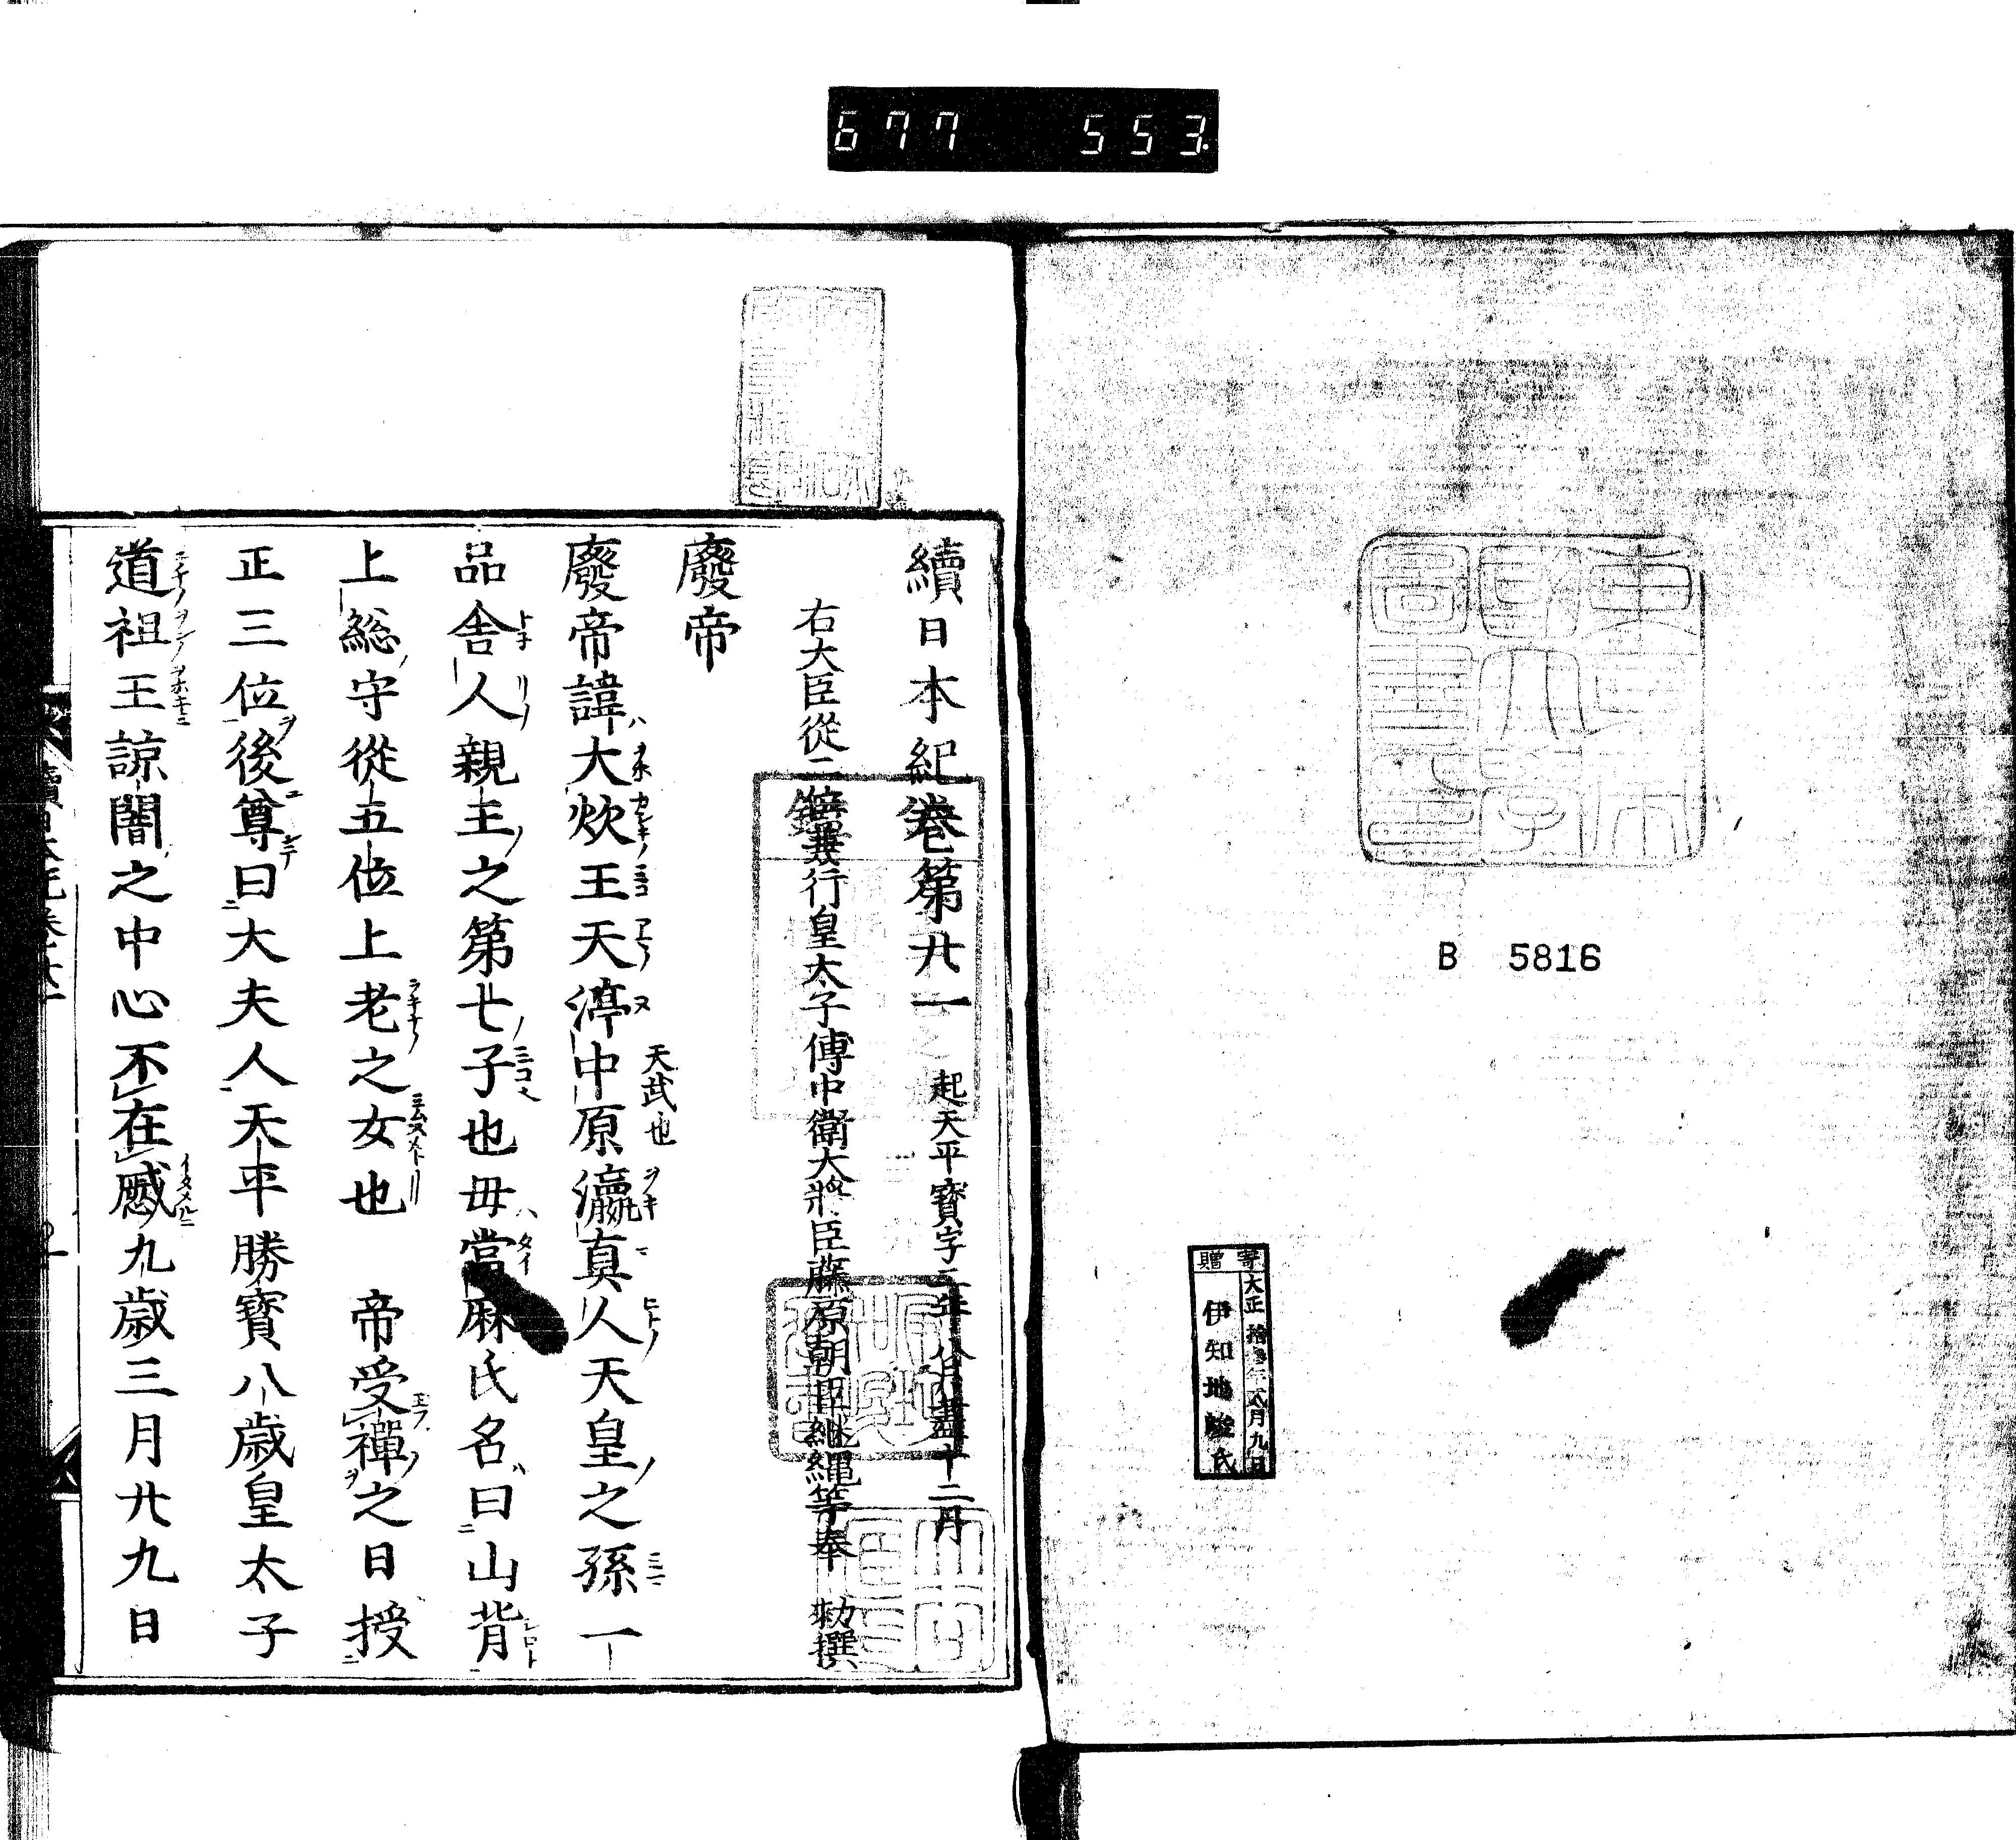 677 553
東京帝國大學圖書印
B 5816
寄贈
大正拾參年貳月九日
伊知地駿氏
續日本紀卷第廿一 起天平寶字二年八月盡十二月
右大臣從二位兼行皇太子傅中衛大將臣藤原朝臣継縄等奉 勅撰
廢帝
廢帝諱大炊王天渟中原瀛真人天皇之孫一
天武也
品舎人親王之第七子也母當麻氏名曰山背
上総守從五位上老之女也 帝受禪之日授
正三位後尊曰大夫人天平勝寶八歳皇太子
道祖王諒闇之中心不在慼九歳三月廿九日